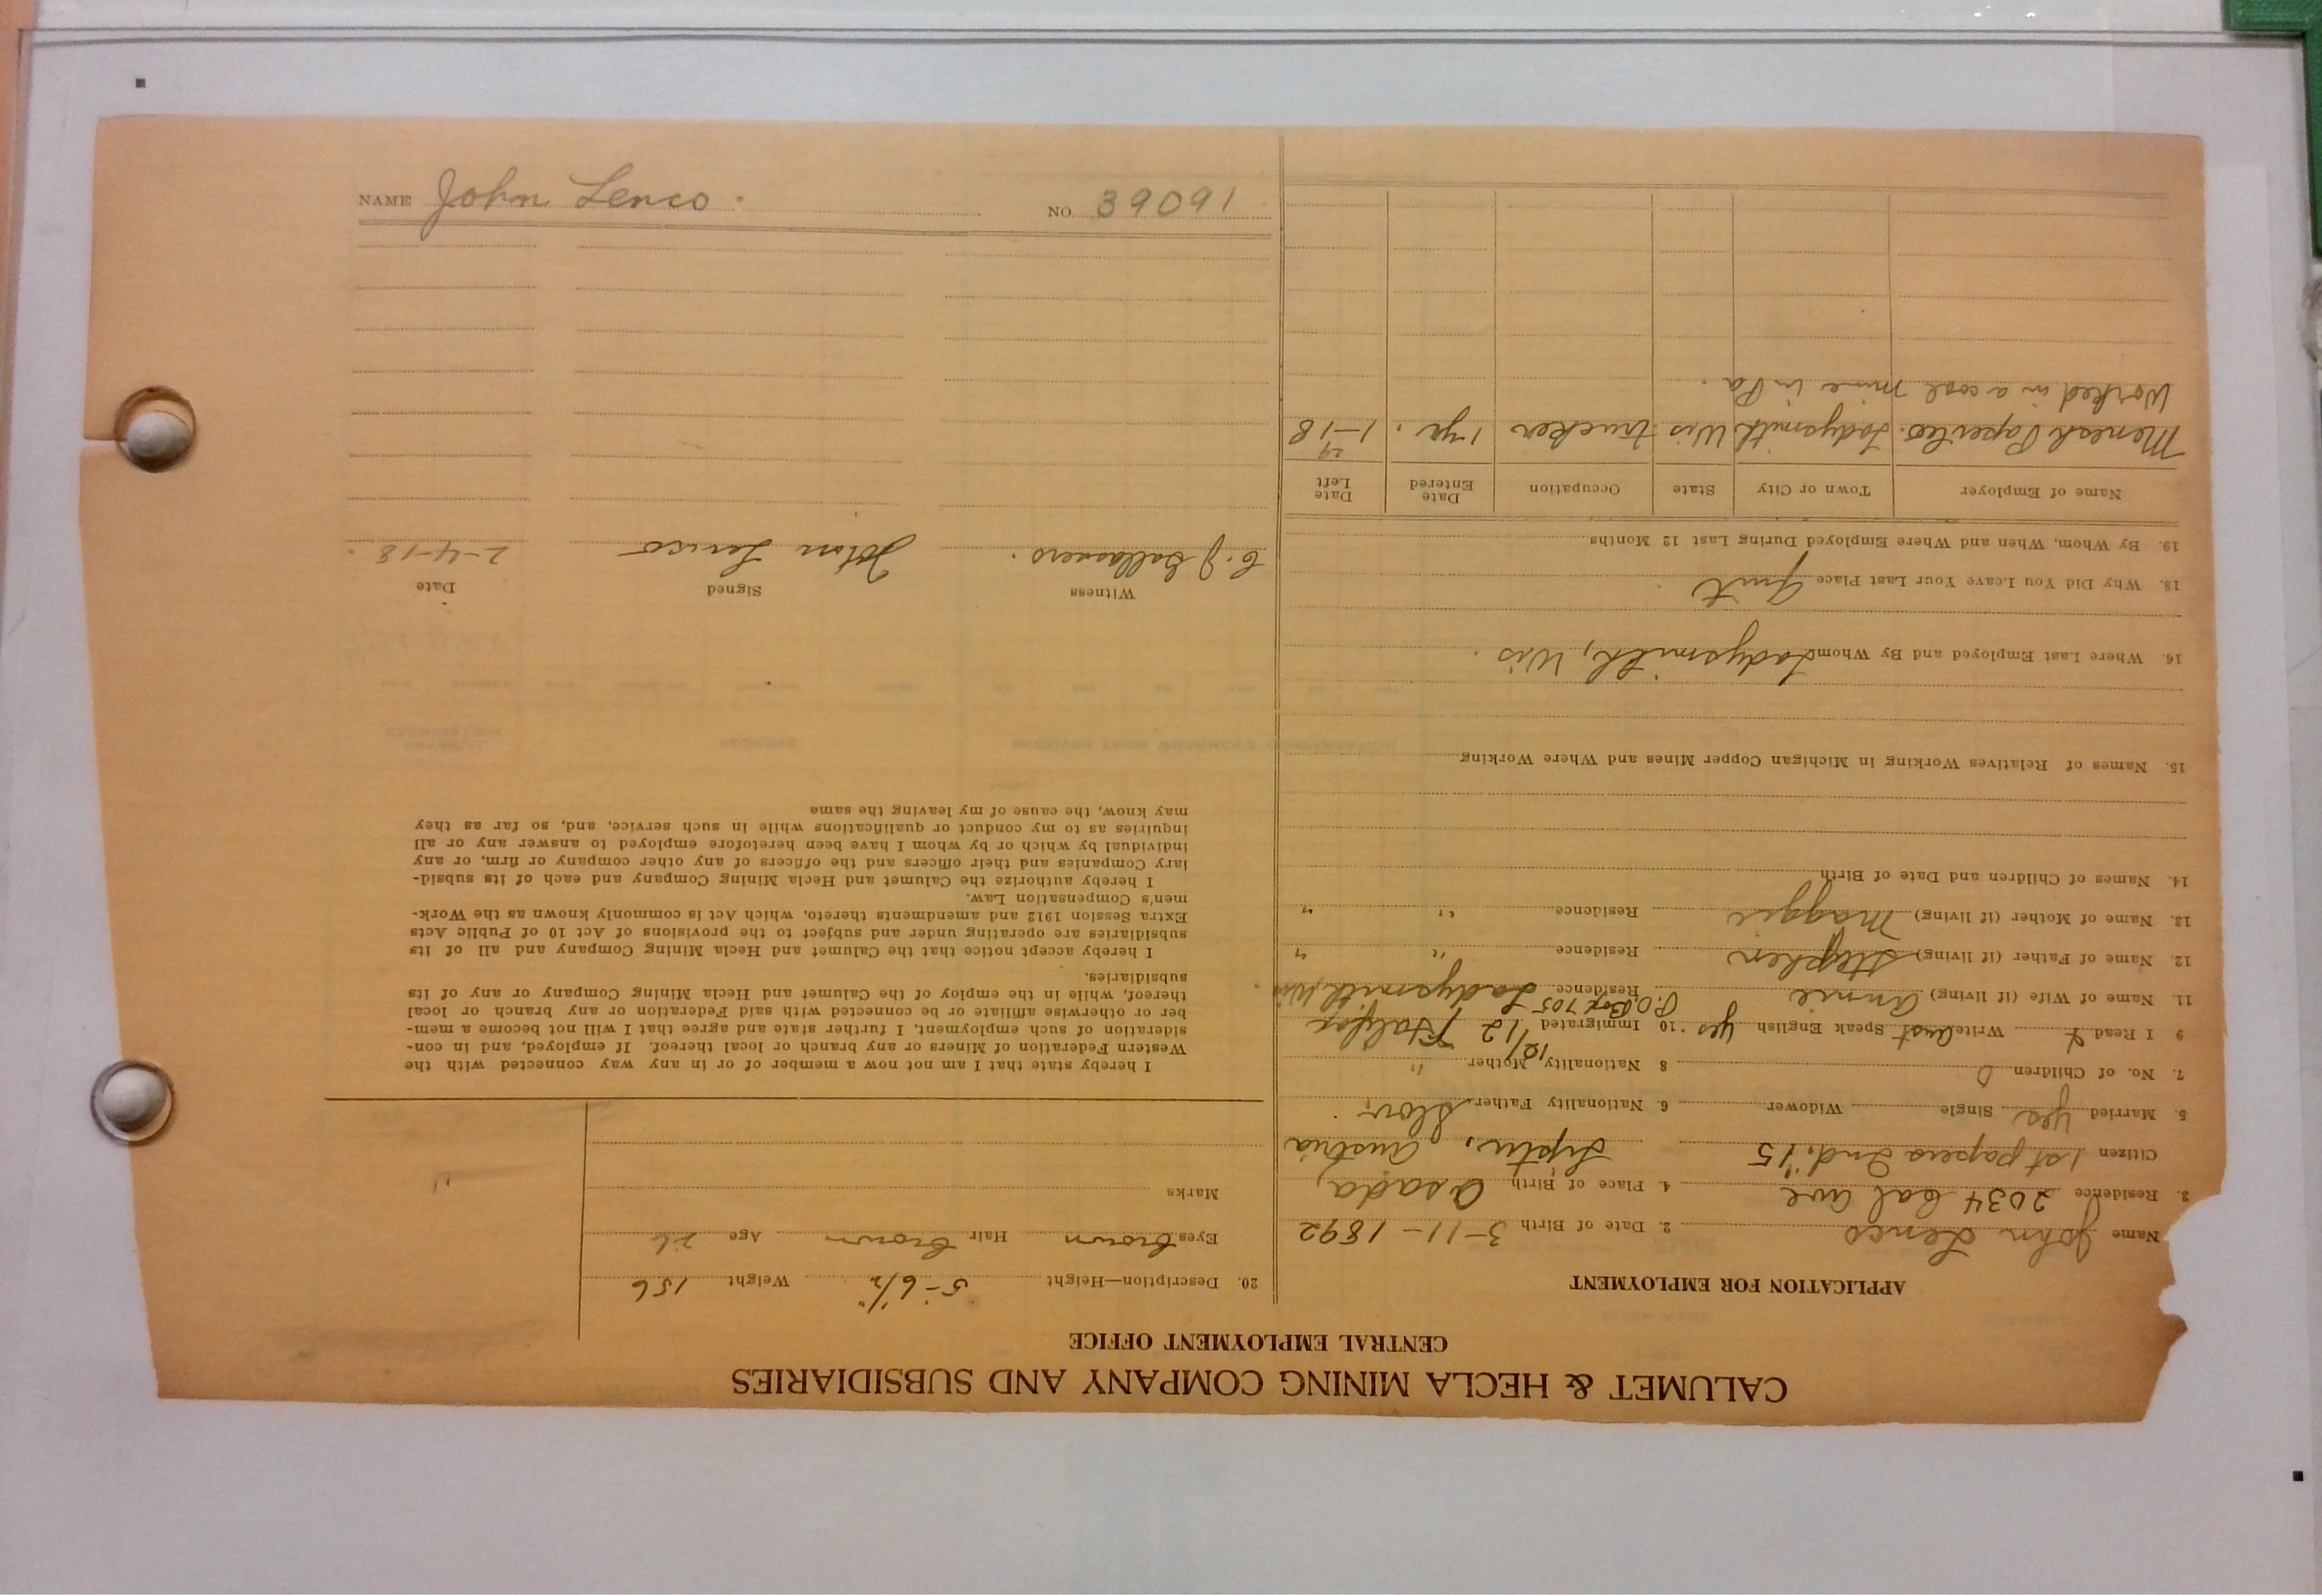 CALUMET & HECLA MINING COMPANY AND SUBSIDIARIES
CENTRAL EMPLOYMENT OFFICE
APPLICATION FOR EMPLOYMENT
Name John Lenco 2. Date of Birth 3-11-1892
3. Residence 2034 Cal Ave 4. Place of Birth Osada,
Citizen 1st papers Ind. '15 Liptu, Austria
5. Married yes Single Widower 6. Nationality Father Slov.
7. No. of Children 0 8 Nationality Mother "
9 I Read & Write Aust Speak English yes 10 Immigrated 10/12 Halifax
P.O. Box 705
11. Name of Wife (if living) Annie Residence Ladysmith, Wis
12. Name of Father (if living) Stephen Residence " "
13. Name of Mother (if living) Maggie Residence " "
14. Names of Children and Date of Birth
15. Names of Relatives Working in Michigan Copper Mines and Where Working
16. Where Last Employed and By Whom Ladysmith, Wis.
18. Why Did You Leave Your Last Place Quit
19. By Whom, When and Where Employed During Last 12 Months
Name of Employer Town or City State Occupation Date Entered Date Left
Menesh Paper Co. Ladysmith Wis trucker 1-yr. 1-29-18
Worked in a coal mine in Pa.
20. Description—Height 5-6 1/2" Weight 156
Eyes Brown Hair Brown Age 26
Marks
I hereby state that I am not now a member of or in any way connected with the
Western Federation of Miners or any branch or local thereof. If employed, and in con-
sideration of such employment, I further state and agree that I will not become a mem-
ber or otherwise affiliate or be connected with said Federation or any branch or local
thereof, while in the employ of the Calumet and Hecla Mining Company or any of its
subsidiaries.
I hereby accept notice that the Calumet and Hecla Mining Company and all of its
subsidiaries are operating under and subject to the provisions of Act 10 of Public Acts
Extra Session 1912 and amendments thereto, which Act is commonly known as the Work-
men's Compensation Law.
I hereby authorize the Calumet and Hecla Mining Company and each of its subsid-
iary Companies and their officers and the officers of any other company or firm, or any
individual by which or by whom I have been heretofore employed to answer any or all
inquiries as to my conduct or qualifications while in such service, and, so far as they
may know, the cause of my leaving the same
Witness Signed Date
C. J. John Lenco 2-4-18.
NAME John Lenco. NO. 39091